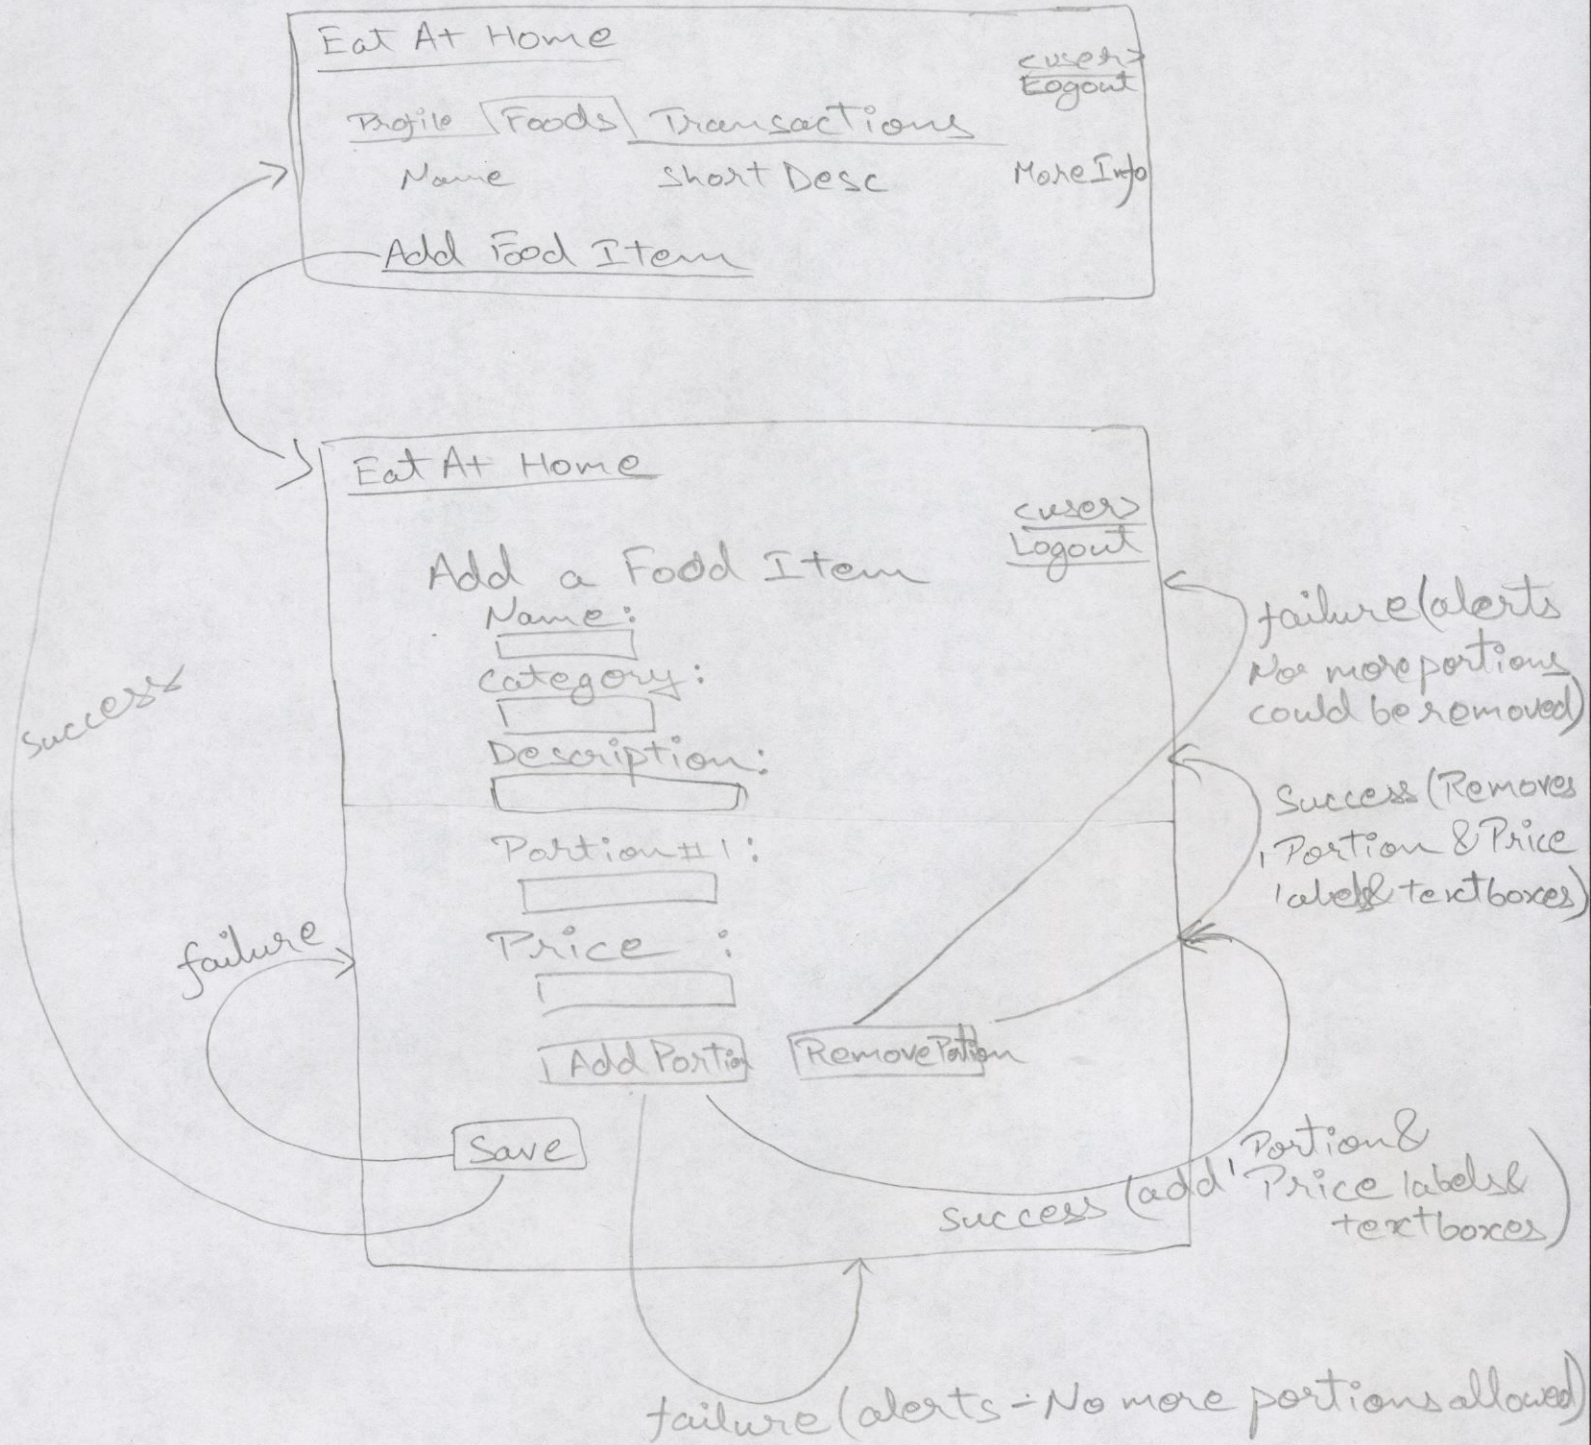 Eat At Home
<user>
Logout
Profile Foods Transactions
Name Short Desc More Info
Add Food Item
Eat At Home
<user>
Logout
Add a Food Item
Name:
Category:
Description:
Portion #1:
Price :
Add Portion Remove Portion
Save
success
failure
failure (alerts
No more portions
could be removed)
Success (Removes
1 Portion & Price
labels & textboxes)
success (add 1 Portion &
Price labels &
textboxes)
failure (alerts - No more portions allowed)